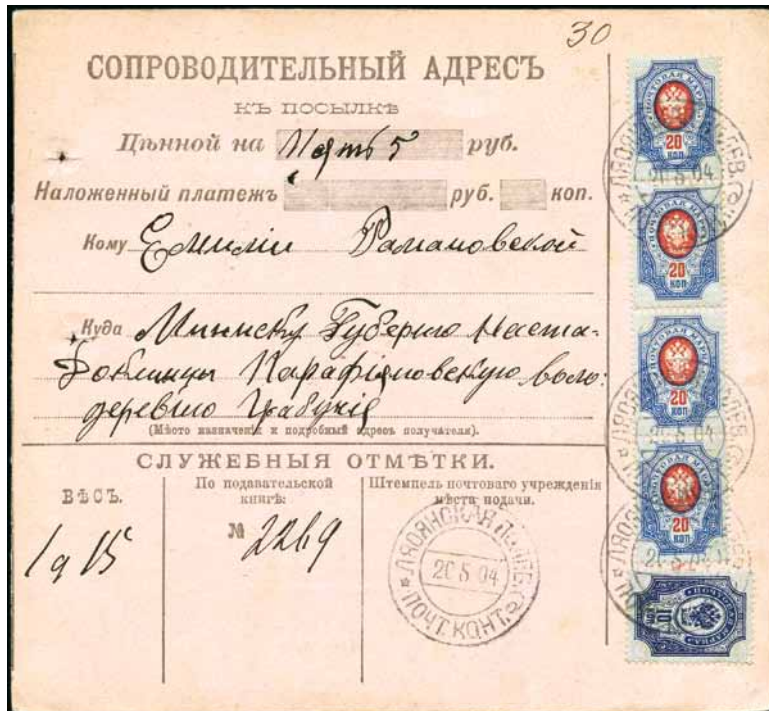 30
СОПРОВОДИТЕЛЬНЫЙ АДРЕСЪ
КЪ ПОСЫЛКѢ
Цѣнной на Пять 5 руб.
Наложенный платежъ руб. коп.
Кому Емиліи Рамановской
Куда Минску Губернію
Докшицы Карафіановскую воло:
деревню
(Мѣсто назначенія и подробный адресъ получателя).
СЛУЖЕБНЫЯ ОТМѢТКИ.
ВѢСЪ.
По подавательской книгѣ:
Штемпель почтоваго учрежденія мѣста подачи.
№ 2269
ЛЯОЯНСКАЯ
20 5 04
ПОЧТ. КОНТ.
ПОЧТОВАЯ МАРКА
20 КОП
ПОЧТОВАЯ МАРКА
20 КОП
ПОЧТОВАЯ МАРКА
20 КОП
ПОЧТОВАЯ МАРКА
20 КОП
ПОЧТОВАЯ МАРКА
10 КОП